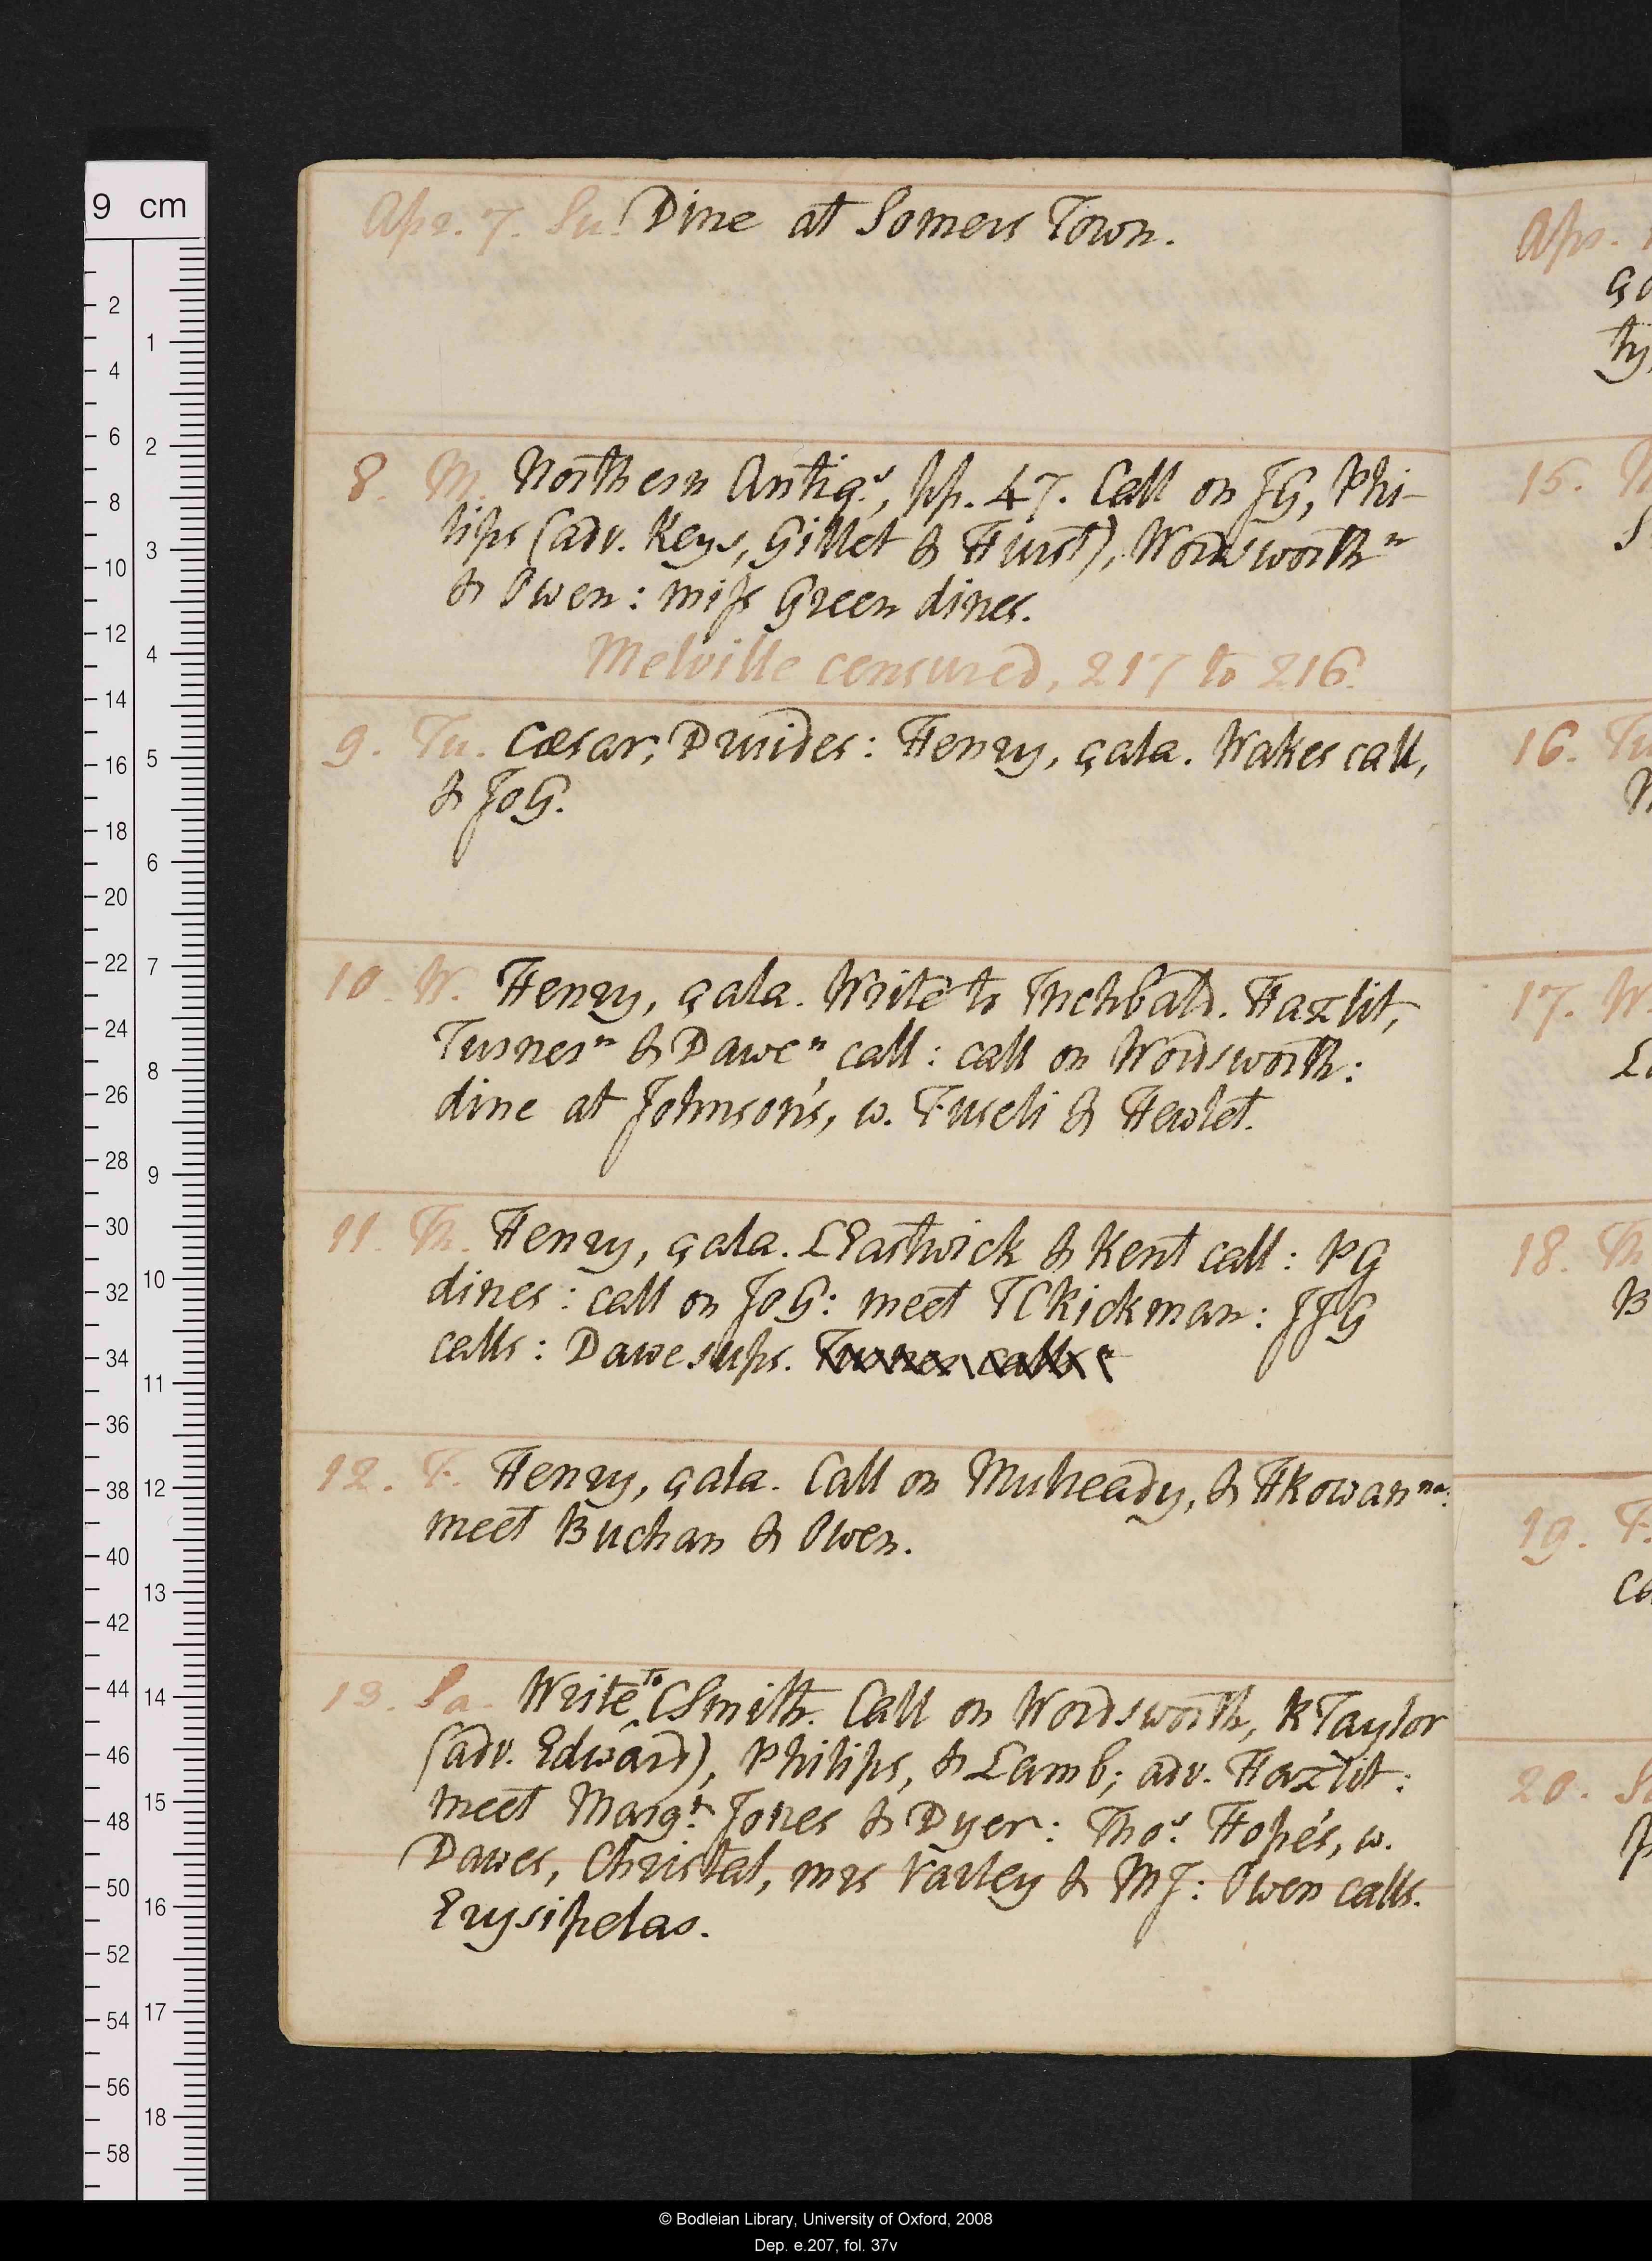 9 cm
Apr. 7. Su. Dine at Somers Town.
8. M. Northern Antiqs, pp. 47. Call on JG, Phi-
lips (adv. Keys, Gillet & Hurst), Wordsworth n
& Owen: miss Green dines.
Melville censured, 217 to 216.
9. Tu. Cæsar, Druides: Henry, çala. Wakes call,
& JoG.
10. W. Henry, çala. Write to Inchbald. Hazlit,
Turner n & Dawe n, call: call on Wordsworth:
dine at Johnson's, w. Fuseli & Hewlet.
11. Th. Henry, çala. LEastwick & Kent call: PG
dines: call on JoG: meet TCRickman: JJG
calls: Dawe sups. Turner calls n
12. F. Henry, çala. Call on Mulready, & HRowan na:
meet Buchan & Owen.
13. Sa. Write to CSmith. Call on Wordsworth, RTaylor
(adv. Edward), Philips, & Lamb; adv. Hazlit:
meet Margt Jones & Dyer: Thos Hope's, w.
Dawes, Christal, mrs Varley & MJ: Owen calls.
Erysipelas.
Apr.
ty,
15.
16. Tu
17. W.
18. Th
B
19. F.
20. Sa
2
4
6
8
10
12
14
16
18
20
22
24
26
28
30
32
34
36
38
40
42
44
46
48
50
52
54
56
58
1
2
3
4
5
6
7
8
9
10
11
12
13
14
15
16
17
18
© Bodleian Library, University of Oxford, 2008
Dep. e.207, fol. 37v